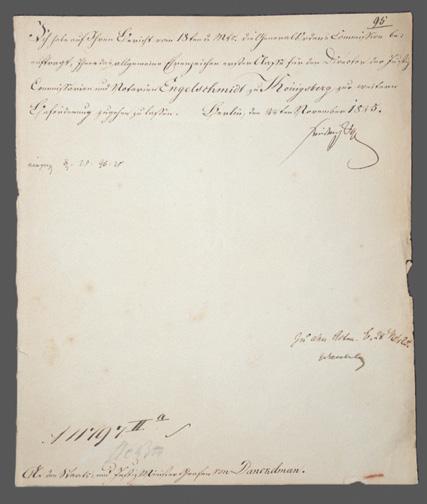 95
Ich habe auf Ihren Bericht vom 18ten v. Mts. die General Ordens Commission be-
auftragt, Ihnen das allgemeine Ehrenzeichen erster Classe für den Director der Justiz
Commissarien und Notarien Engelschmidt zu Königsberg, zur weitern
Beförderung zugehen zu lassen. Berlin, den ten November 18
Friedrich W
zu den Acten. B. 28 Nov.
A 11797 II a
An den Staats- und Justiz Minister Grafen von Danckelman.